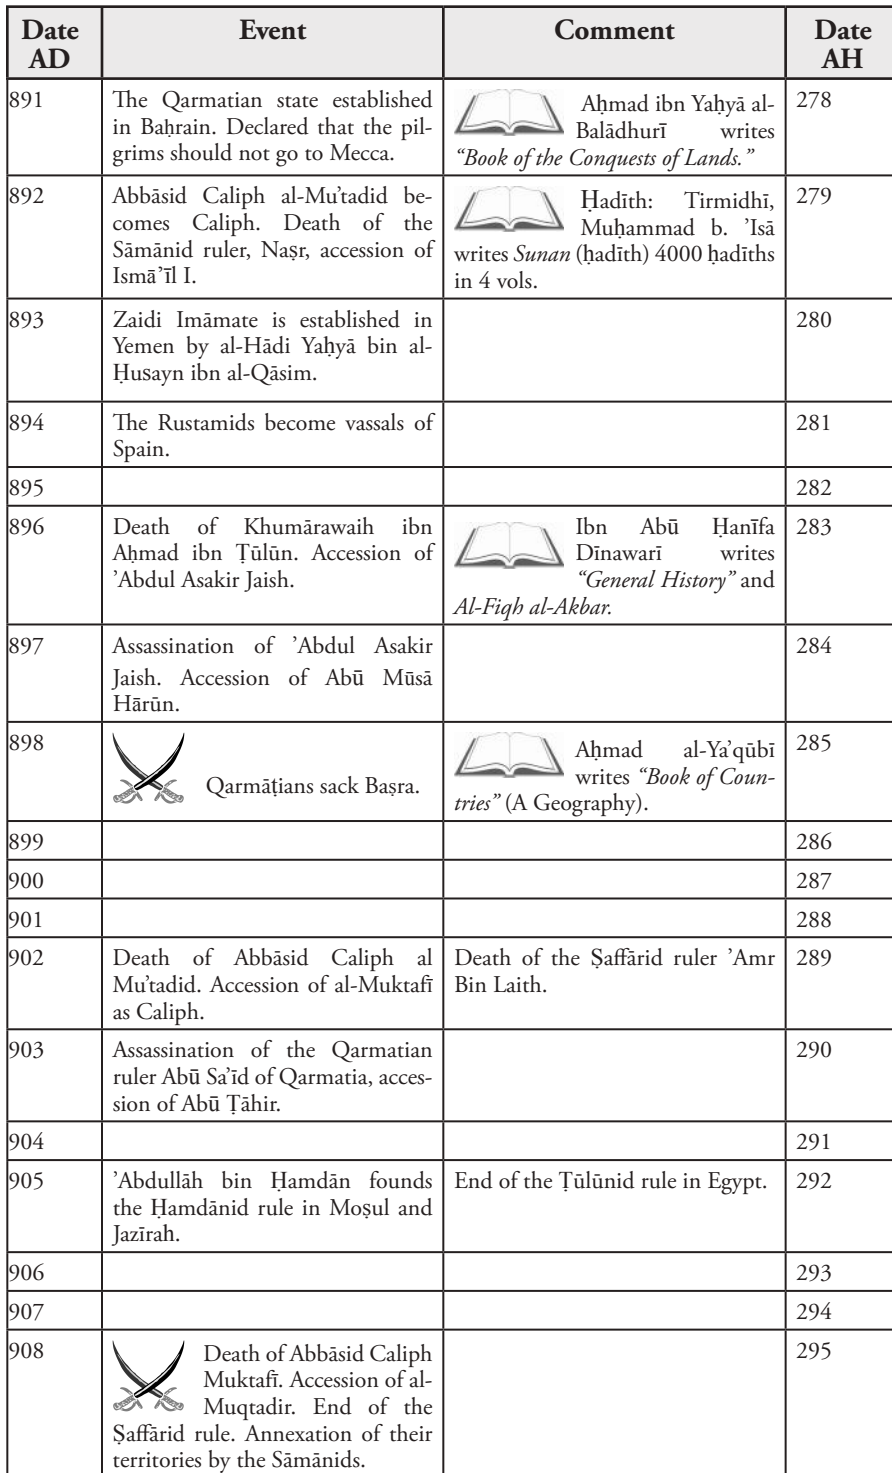 Date AD Event Comment Date AH
891 The Qarmatian state established 278
in Baḥrain. Declared that the pil-
grims should not go to Mecca.
Aḥmad ibn Yaḥyā al-
Balādhurī writes
“Book of the Conquests of Lands.”
892 Abbāsid Caliph al-Mu’tadid be- 279
comes Caliph. Death of the
Sāmānid ruler, Naṣr, accession of
Ismā’īl I.
Ḥadīth: Tirmidhī,
Muḥammad b. ’Isā
writes Sunan (ḥadīth) 4000 ḥadīths
in 4 vols.
893 Zaidi Imāmate is established in 280
Yemen by al-Hādi Yaḥyā bin al-
Ḥusayn ibn al-Qāsim.
894 The Rustamids become vassals of 281
Spain.
895 282
896 Death of Khumārawaih ibn 283
Aḥmad ibn Ṭūlūn. Accession of
’Abdul Asakir Jaish.
Ibn Abū Ḥanīfa
Dīnawarī writes
“General History” and
Al-Fiqh al-Akbar.
897 Assassination of ’Abdul Asakir 284
Jaish. Accession of Abū Mūsā
Hārūn.
898 Qarmāṭians sack Baṣra. 285
Aḥmad al-Ya’qūbī
writes “Book of Coun-
tries” (A Geography).
899 286
900 287
901 288
902 Death of Abbāsid Caliph al 289
Mu’tadid. Accession of al-Muktafī
as Caliph.
Death of the Ṣaffārid ruler ’Amr
Bin Laith.
903 Assassination of the Qarmatian 290
ruler Abū Sa’īd of Qarmatia, acces-
sion of Abū Ṭāhir.
904 291
905 ’Abdullāh bin Ḥamdān founds 292
the Ḥamdānid rule in Moṣul and
Jazīrah.
End of the Ṭūlūnid rule in Egypt.
906 293
907 294
908 Death of Abbāsid Caliph 295
Muktafī. Accession of al-
Muqtadir. End of the
Ṣaffārid rule. Annexation of their
territories by the Sāmānids.